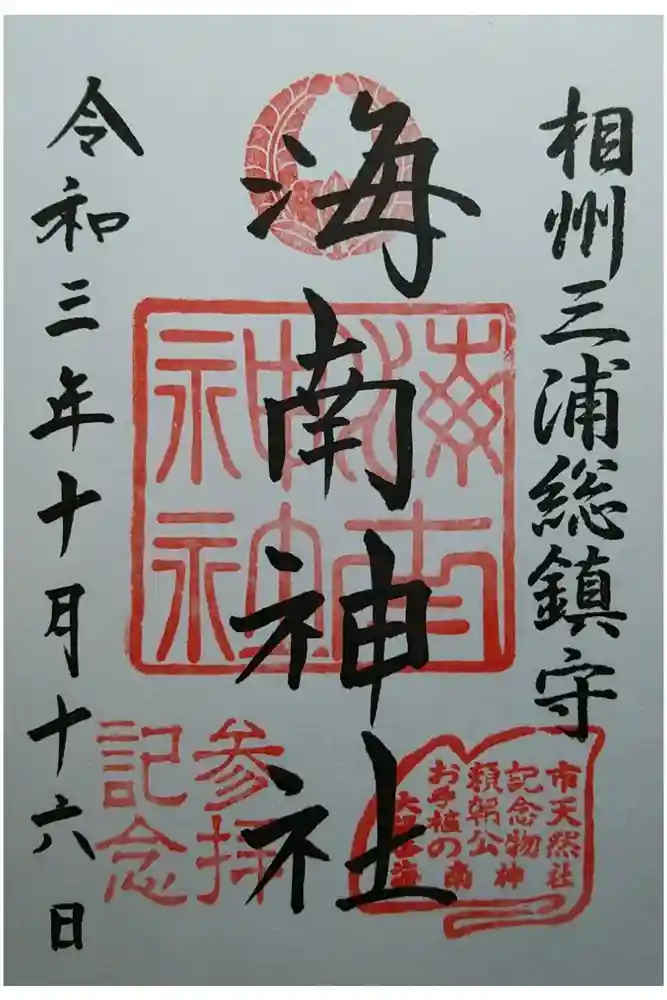 相州三浦総鎮守
海南神社
令和三年十月十六日
海南神社
参拝
記念
市天然
記念物
頼朝公
お手植の
海南神社